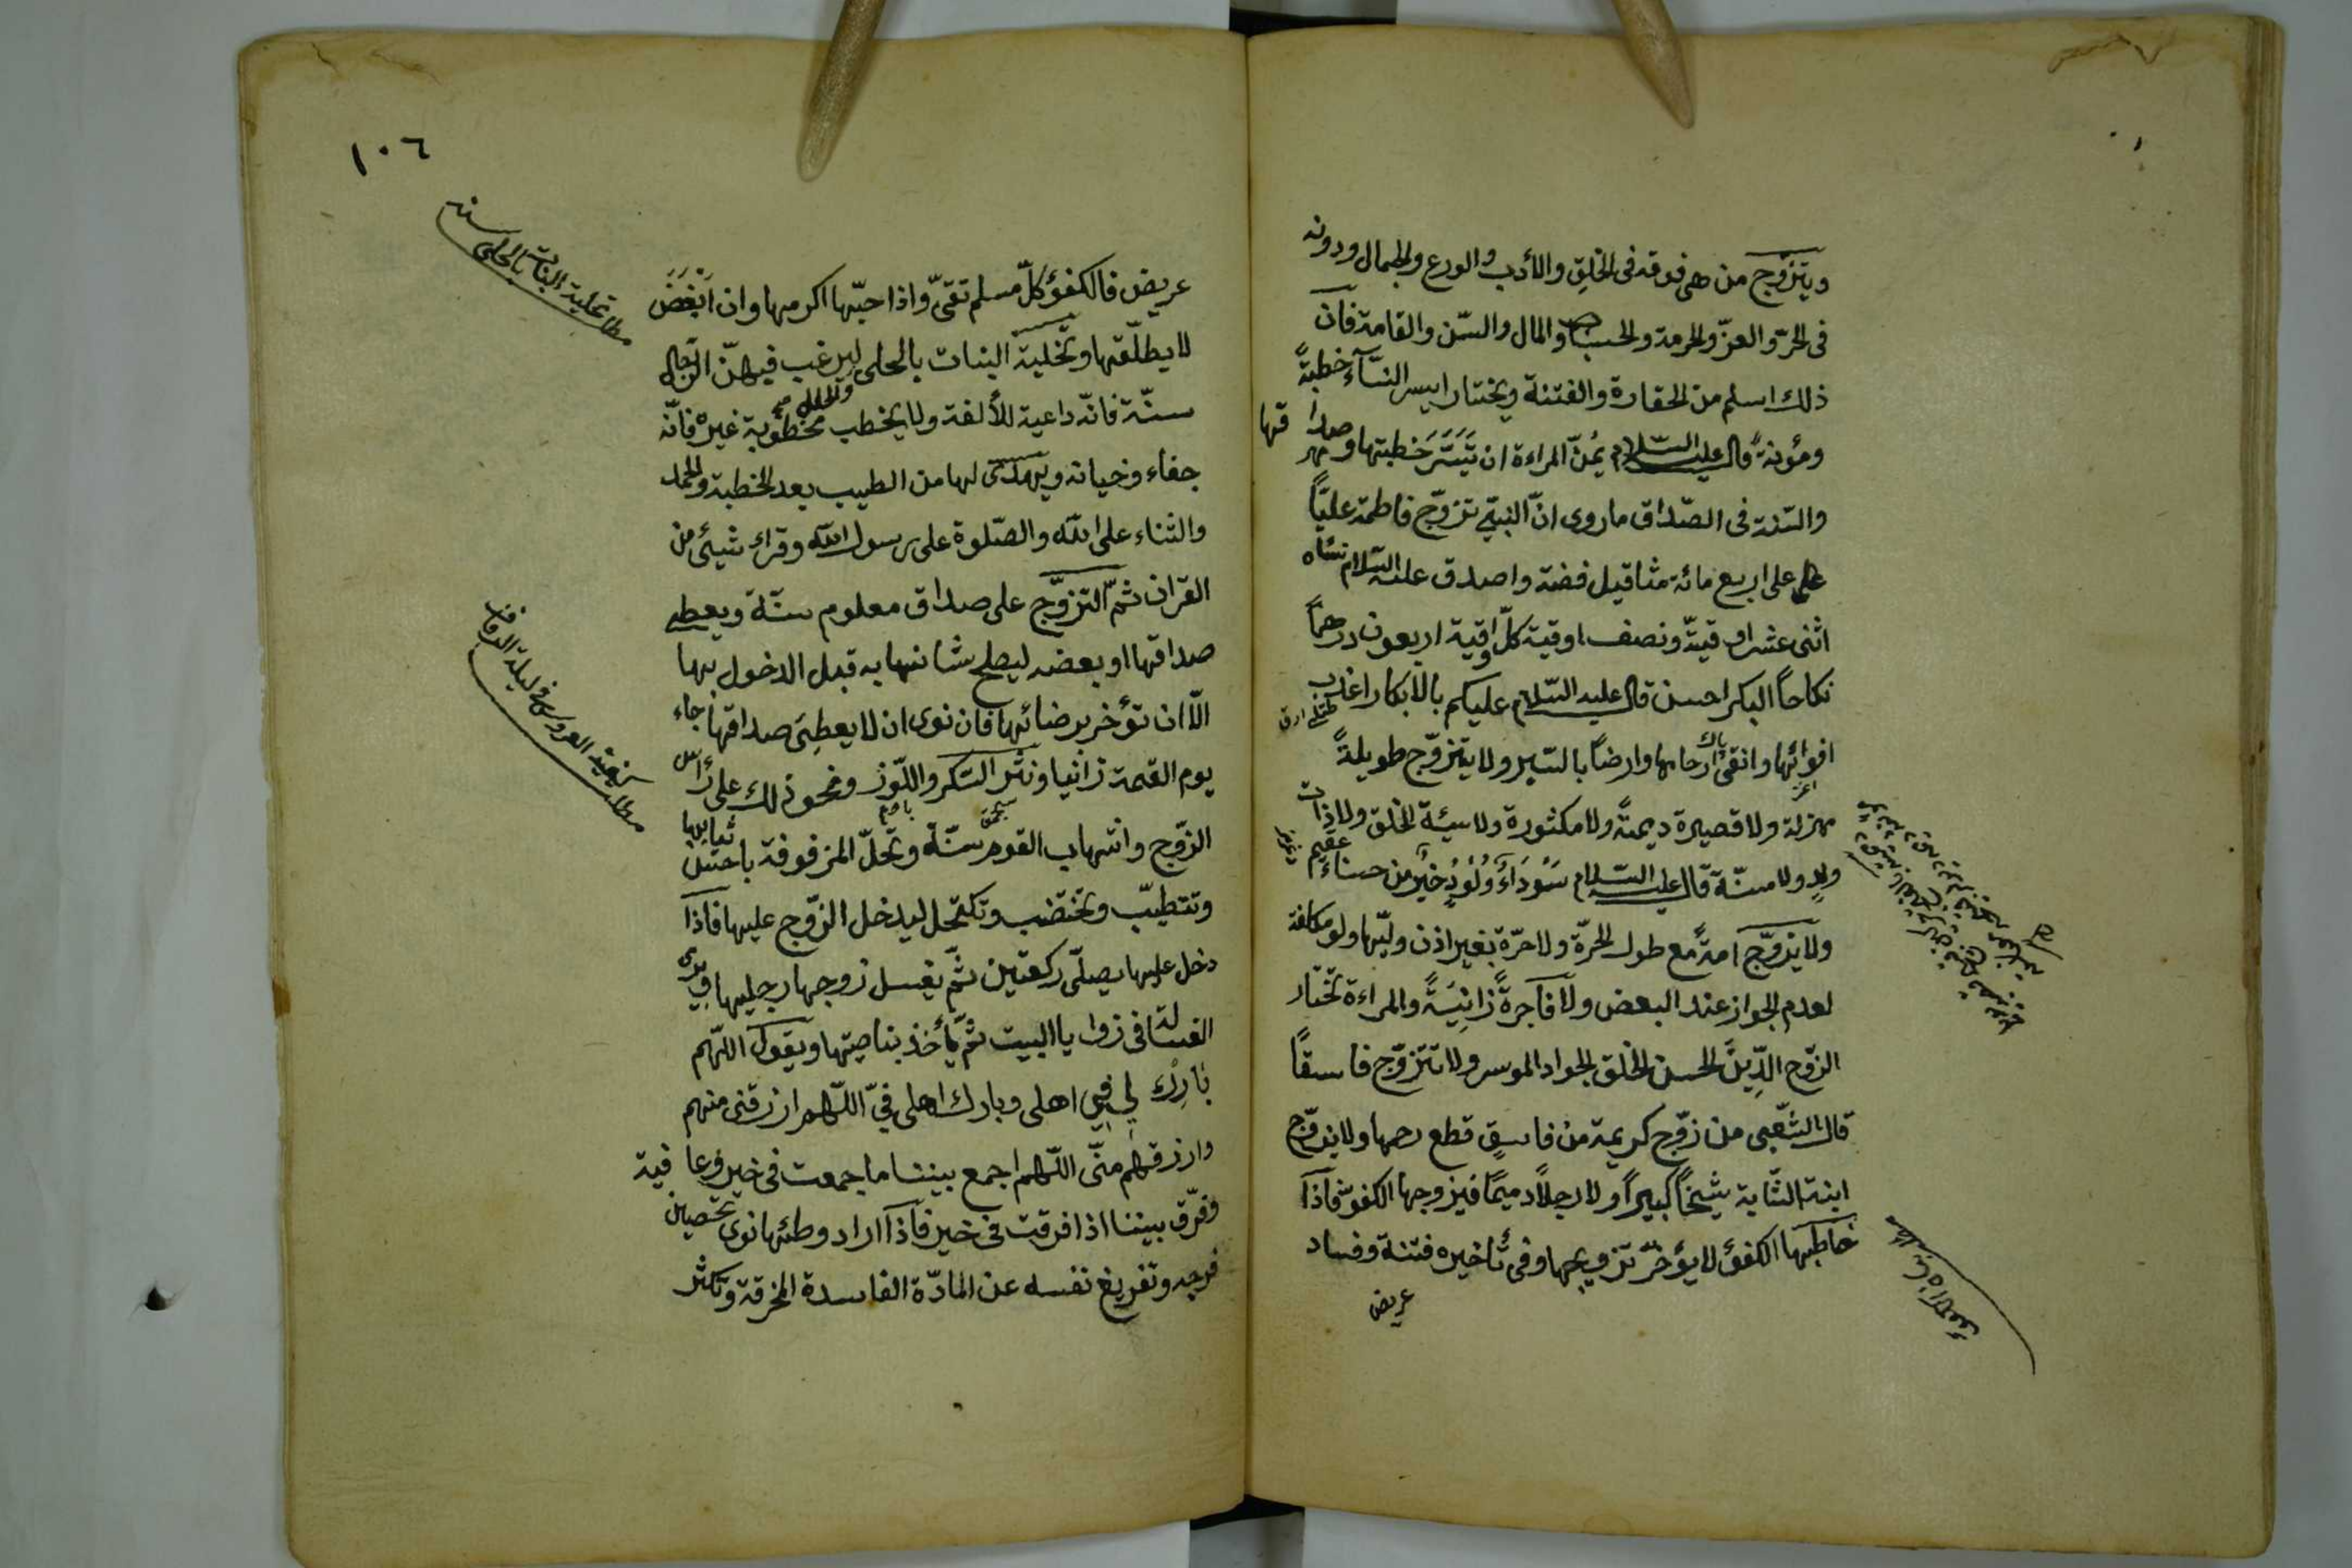 ويتزوّج من هى فوقه فى الخلق والأدب والورع والجمال ودونه
فى الحرّ والعزّ والحرمة والحسب والمال والسّن والقامة فان
ذلك اسلم من الحقارة والفتنة ويختار ايسر النّسآء خطبةً
ومؤنةً قال عليه السّلام يُمنّ المراءة ان تَيَسَّرَ خطبتها وصداقها
والسّنة فى الصّداق ماروى انّ النبىّ تزوّج فاطمة عليّاً
على اربع مائة مثاقيل فضة واصدق عليه السّلام نسٓاه
اثنى عشر اوقيّة ونصف اوقية كلّ اوقية اربعون درهماً
نكاحاً البكر احسن قال عليه السّلام عليكم بالابكار اعذب
افوائها وانقى ارحامها وارضاً باليسير ولا يتزوّج طويلةً
مهزلة ولا قصيرة ديمتةً ولا مكثورة ولا سيئة الخلق ولا ذات
ولدٍ ولا مسنّة قال عليه السلام سَوْدَآءُ وَلُوُدٌ خيرٌ من حسناء عقيم
ولا يزوّج امةً مع طول الحرّة ولا حرّة بغير اذن وليّها ولو مكافة
لعدم الجواز عند البعض ولا فاجرةً زانِيَةً والمراءة تختار
الزوّج الدِّينَ الحسن الخلق الجواد الموسر ولا تتزوّج فاسقاً
قال الشّعبى من زوّج كريمة من فاسقٍ قطع رحمها ولا يزوّج
ابنته الشّابة شيخاً كبيراً ولا رجلاً دميمًا فيزوجها الكفوّ فاذا
خاطبها الكفؤ لا يؤخرّ تزويجها وفى تأخيره فتنة وفساد
عريض
١٠٦
عريض فالكفؤ كلّ مسلم تقىّ واذا حبّها اكرمها وان اَبْغَضَ
لا يطلّقها وتخلية البنات بالحلى ليرغب فيهنّ الرّجال
سنّة فانّه داعية للألفة ولا يخطب مخطوبة غيره فانّه
جفاء وخيانة ويهدى لها من الطيب بعد الخطبة والحمد
والثناء على اللّه والصّلوة على رسول اللّه وقراء شيئى من
القران ثمّ التزوّج على صداق معلوم سنّة ويعطى
صداقها او بعضه ليصلح شانها به قبل الدخول بها
الّا ان تؤخر برضائها فان نوى ان لا يعطِىَ صداقها جاء
يوم القيمة زانيا ونثر السّكر واللّوز ونحو ذلك على رأس
الزوّج وانتهاب القوم سنّة وتحلّ المزفوفة باحسن ثيابها
وتتطيّب وتختضب وتكتحل ليدخل الزوّج عليها فاذا
دخل عليها يصلّى ركعتين ثمّ يغسل زوجها رجليها ويرمى
الغسالة فى زوايا البيت ثمّ يأخذ بناصيتها ويقول اللّهم
بَارِكْ لى فِى اهلى وبارك اهلى فىّ اللّهم ارزقنى منهم
وارزقهم منّى اللّهم اجمع بيننا ما جمعت فى خير وعافية
وفرّق بيننا اذا فرقت فى خير فاذا اراد وطئها نوى تحصين
فرجه وتفريغ نفسه عن المادّة الفاسدة المخرقة وتكثر
مطلب تحلية البنات بالحلى سنة
مطلب تزيّنة العروس فى ليلة الزفاف